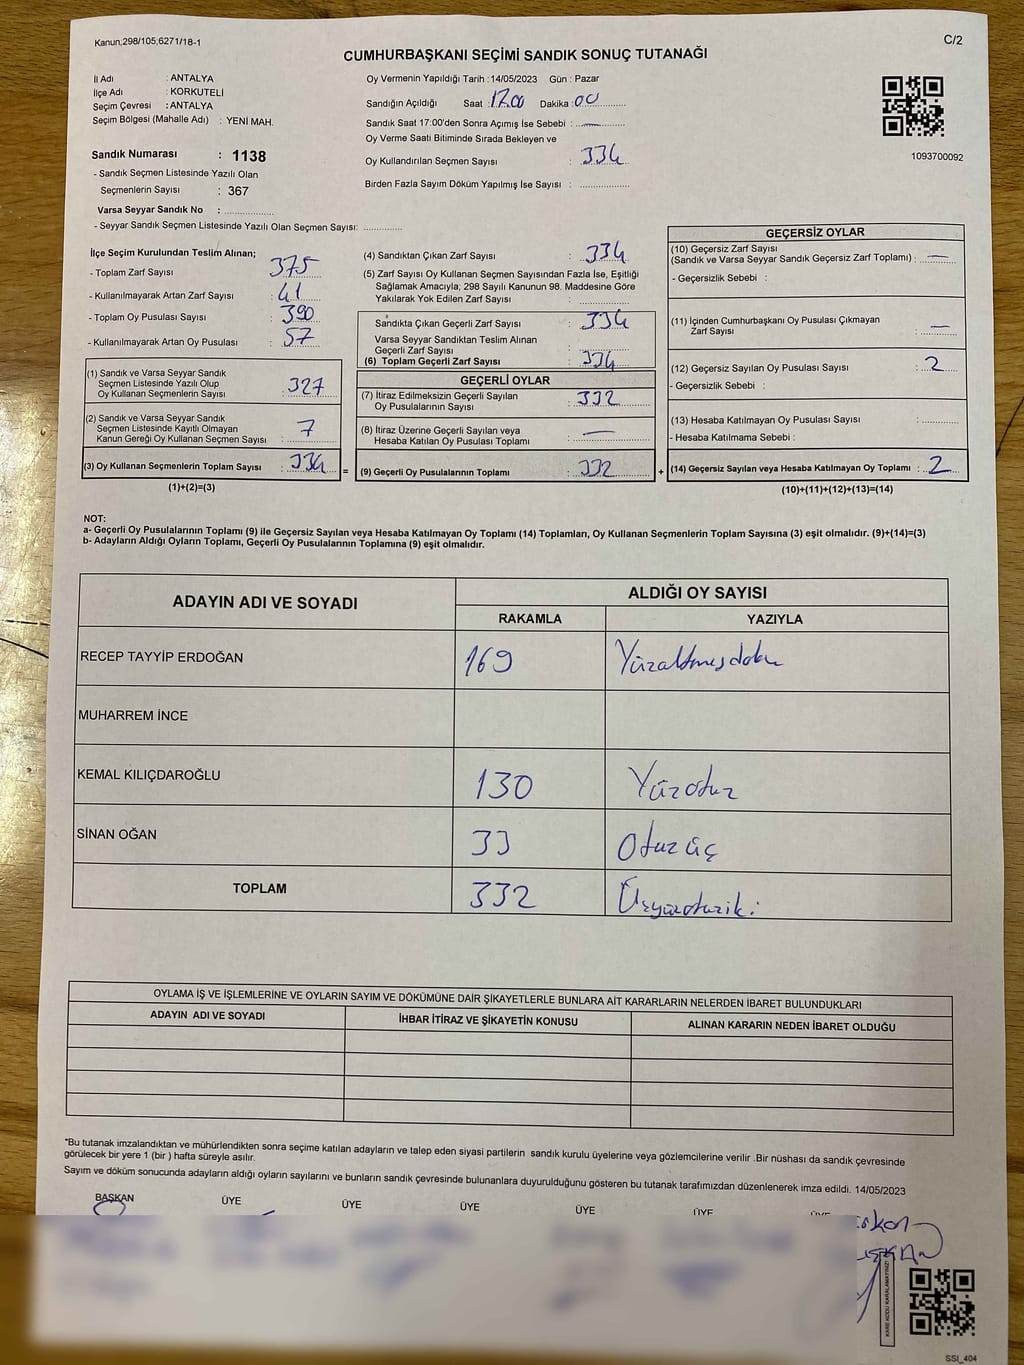 Kanun;298/105;6271/18-1
C/2
CUMHURBAŞKANI SEÇİMİ SANDIK SONUÇ TUTANAĞI
İl Adı : ANTALYA
İlçe Adı : KORKUTELİ
Seçim Çevresi : ANTALYA
Seçim Bölgesi (Mahalle Adı) : YENİ MAH.
Sandık Numarası : 1138
- Sandık Seçmen Listesinde Yazılı Olan
Seçmenlerin Sayısı : 367
Varsa Seyyar Sandık No : ................
- Seyyar Sandık Seçmen Listesinde Yazılı Olan Seçmen Sayısı: ............
Oy Vermenin Yapıldığı Tarih :14/05/2023 Gün : Pazar
Sandığın Açıldığı Saat : 17.00 Dakika : 00
Sandık Saat 17:00'den Sonra Açımış İse Sebebi : —
Oy Verme Saati Bitiminde Sırada Bekleyen ve
Oy Kullandırılan Seçmen Sayısı : 334
Birden Fazla Sayım Döküm Yapılmış İse Sayısı : ................
1093700092
İlçe Seçim Kurulundan Teslim Alınan;
- Toplam Zarf Sayısı : 375
- Kullanılmayarak Artan Zarf Sayısı : 41
- Toplam Oy Pusulası Sayısı : 390
- Kullanılmayarak Artan Oy Pusulası : 57
(1) Sandık ve Varsa Seyyar Sandık
Seçmen Listesinde Yazılı Olup
Oy Kullanan Seçmenlerin Sayısı : 327
(2) Sandık ve Varsa Seyyar Sandık
Seçmen Listesinde Kayıtlı Olmayan
Kanun Gereği Oy Kullanan Seçmen Sayısı : 7
(3) Oy Kullanan Seçmenlerin Toplam Sayısı : 334
(1)+(2)=(3)
(4) Sandıktan Çıkan Zarf Sayısı : 334
(5) Zarf Sayısı Oy Kullanan Seçmen Sayısından Fazla İse, Eşitliği
Sağlamak Amacıyla; 298 Sayılı Kanunun 98. Maddesine Göre
Yakılarak Yok Edilen Zarf Sayısı : ................
Sandıkta Çıkan Geçerli Zarf Sayısı : 334
Varsa Seyyar Sandıktan Teslim Alınan
Geçerli Zarf Sayısı : ................
(6) Toplam Geçerli Zarf Sayısı : 334
GEÇERLİ OYLAR
(7) İtiraz Edilmeksizin Geçerli Sayılan
Oy Pusulalarının Sayısı : 332
(8) İtiraz Üzerine Geçerli Sayılan veya
Hesaba Katılan Oy Pusulası Toplamı : —
= (9) Geçerli Oy Pusulalarının Toplamı : 332
GEÇERSİZ OYLAR
(10) Geçersiz Zarf Sayısı
(Sandık ve Varsa Seyyar Sandık Geçersiz Zarf Toplamı) : —
- Geçersizlik Sebebi :
(11) İçinden Cumhurbaşkanı Oy Pusulası Çıkmayan
Zarf Sayısı : —
(12) Geçersiz Sayılan Oy Pusulası Sayısı : 2
- Geçersizlik Sebebi :
(13) Hesaba Katılmayan Oy Pusulası Sayısı : ............
- Hesaba Katılmama Sebebi :
+ (14) Geçersiz Sayılan veya Hesaba Katılmayan Oy Toplamı : 2
(10)+(11)+(12)+(13)=(14)
NOT:
a- Geçerli Oy Pusulalarının Toplamı (9) ile Geçersiz Sayılan veya Hesaba Katılmayan Oy Toplamı (14) Toplamları, Oy Kullanan Seçmenlerin Toplam Sayısına (3) eşit olmalıdır. (9)+(14)=(3)
b- Adayların Aldığı Oyların Toplamı, Geçerli Oy Pusulalarının Toplamına (9) eşit olmalıdır.
ADAYIN ADI VE SOYADI ALDIĞI OY SAYISI
RAKAMLA YAZIYLA
RECEP TAYYİP ERDOĞAN 169 Yüzaltmışdokuz
MUHARREM İNCE
KEMAL KILIÇDAROĞLU 130 Yüzotuz
SİNAN OĞAN 33 Otuzüç
TOPLAM 332 Üçyüzotuziki
OYLAMA İŞ VE İŞLEMLERİNE VE OYLARIN SAYIM VE DÖKÜMÜNE DAİR ŞİKAYETLERLE BUNLARA AİT KARARLARIN NELERDEN İBARET BULUNDUKLARI
ADAYIN ADI VE SOYADI İHBAR İTİRAZ VE ŞİKAYETİN KONUSU ALINAN KARARIN NEDEN İBARET OLDUĞU
*Bu tutanak imzalandıktan ve mühürlendikten sonra seçime katılan adayların ve talep eden siyasi partilerin sandık kurulu üyelerine veya gözlemcilerine verilir .Bir nüshası da sandık çevresinde
görülecek bir yere 1 (bir ) hafta süreyle asılır.
Sayım ve döküm sonucunda adayların aldığı oyların sayılarını ve bunların sandık çevresinde bulunanlara duyurulduğunu gösteren bu tutanak tarafımızdan düzenlenerek imza edildi. 14/05/2023
BAŞKAN ÜYE ÜYE ÜYE ÜYE ÜYE
KARE KODU KARALAMAYINIZ!
SSI_404